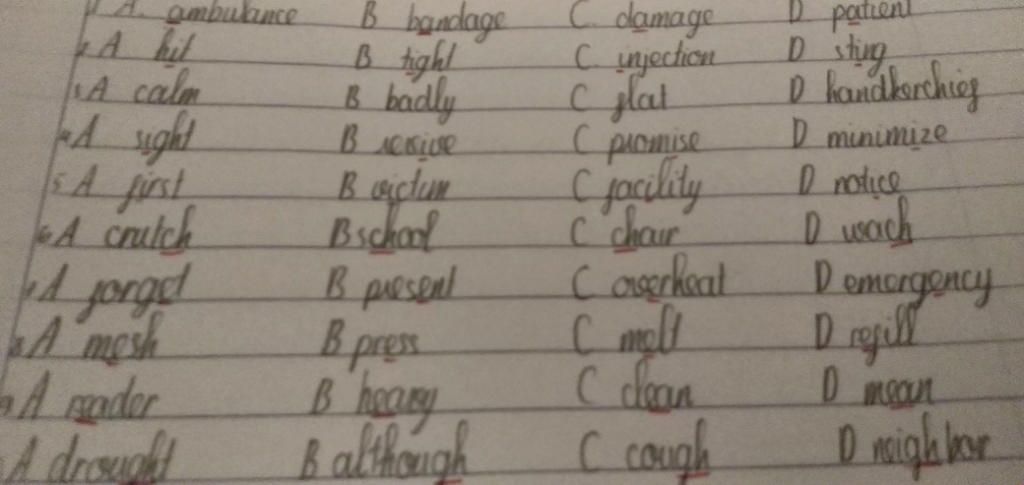 A. ambulance B bandage C. damage D patient
2. A hit B tight C. injection D sting
3. A calm B badly C flat D handkerchief
4. A sight B revise C promise D minimize
5 A first B victim C facility D notice
6 A crutch B school C chair D reach
7 A forget B present C overheat D emergency
8 A mesh B press C melt D refill
9 A reader B heavy C clean D mean
A drought B although C cough D neighbor